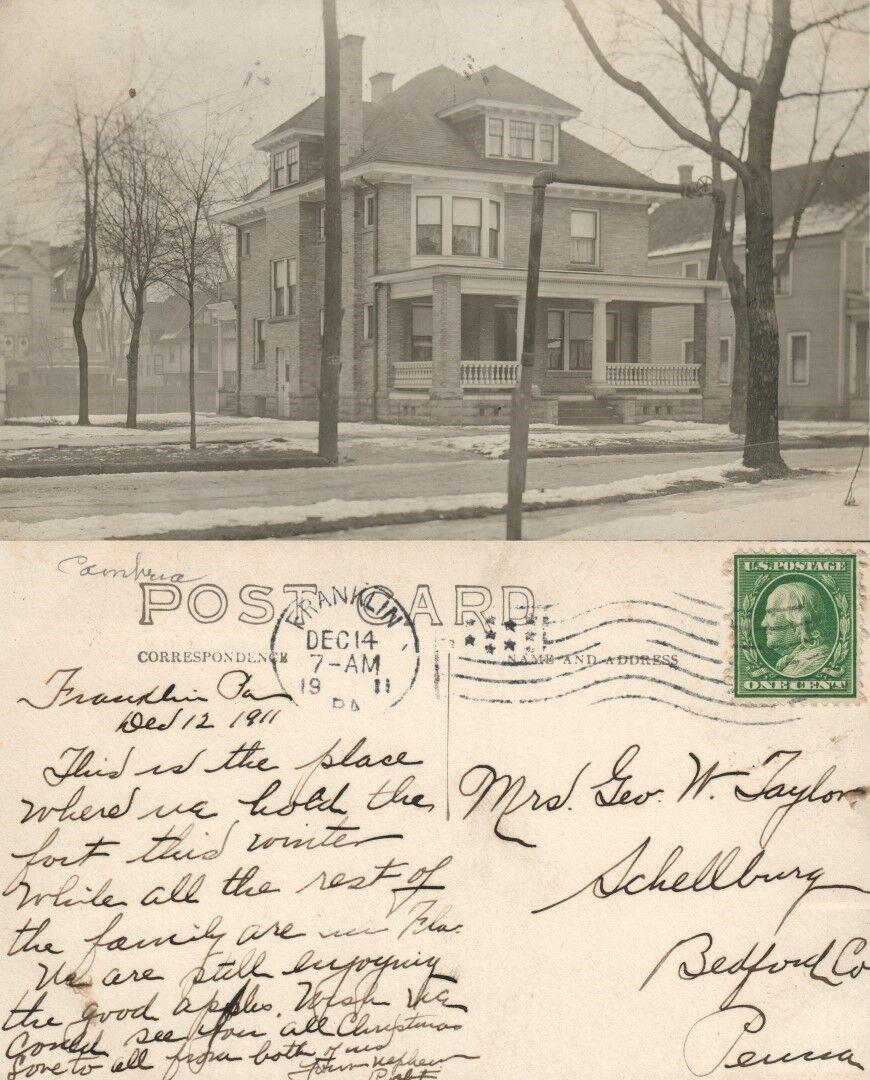 Cambria
POST CARD
CORRESPONDENCE
NAME AND ADDRESS
FRANKLIN
DEC 14
7-AM
1911
PA
U.S. POSTAGE
ONE CENT
Franklin Pa
Dec 12 1911
This is the place
where we hold the
fort this winter
while all the rest of
the family are in Fla.
We are still enjoying
the good apples. Wish we
could see you all Christmas
Love to all from both of us
Your Nephew
Mrs. Geo. W. Taylor
Schellburg
Bedford Co
Penna